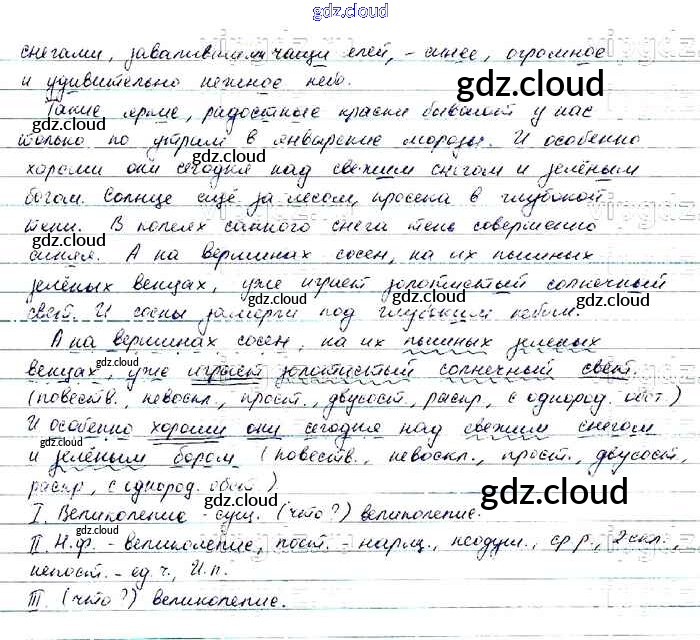 gdz.cloud
снегами, завалившими чащи елей, - синее, огромное
и удивительно нежное небо.
gdz.cloud
Такие яркие, радостные краски бывают у нас
gdz.cloud
только по утрам в январские морозы. И особенно
gdz.cloud
хороши они сегодня над свежим снегом и зелёным
бором. Солнце ещё за лесом, просека в глубокой
gdz.cloud
тени. В колеях санного снега тень совершенно
gdz.cloud
синяя. А на вершинах сосен, на их пышных
gdz.cloud
зелёных венцах, уже играет золотистый солнечный
gdz.cloud
свет. И сосны замерли под глубоким небом.
А на вершинах сосен, на их пышных зеленых
gdz.cloud
венцах, уже играет золотистый солнечный свет.
(повеств., невоскл., прост., двусост., распр., с однород. обст.)
И особенно хороши они сегодня над свежим снегом
gdz.cloud
и зелёным бором (повеств., невоскл., прост., двусост.,
распр., с однород. обст.)
gdz.cloud
I. Великолепие - сущ. (что?) великолепие.
gdz.cloud
II. Н.ф. - великолепие, пост. - нариц., неодуш., ср.р., 2 скл.,
непост. - ед.ч., И.п.
gdz.cloud
III. (что?) великолепие.